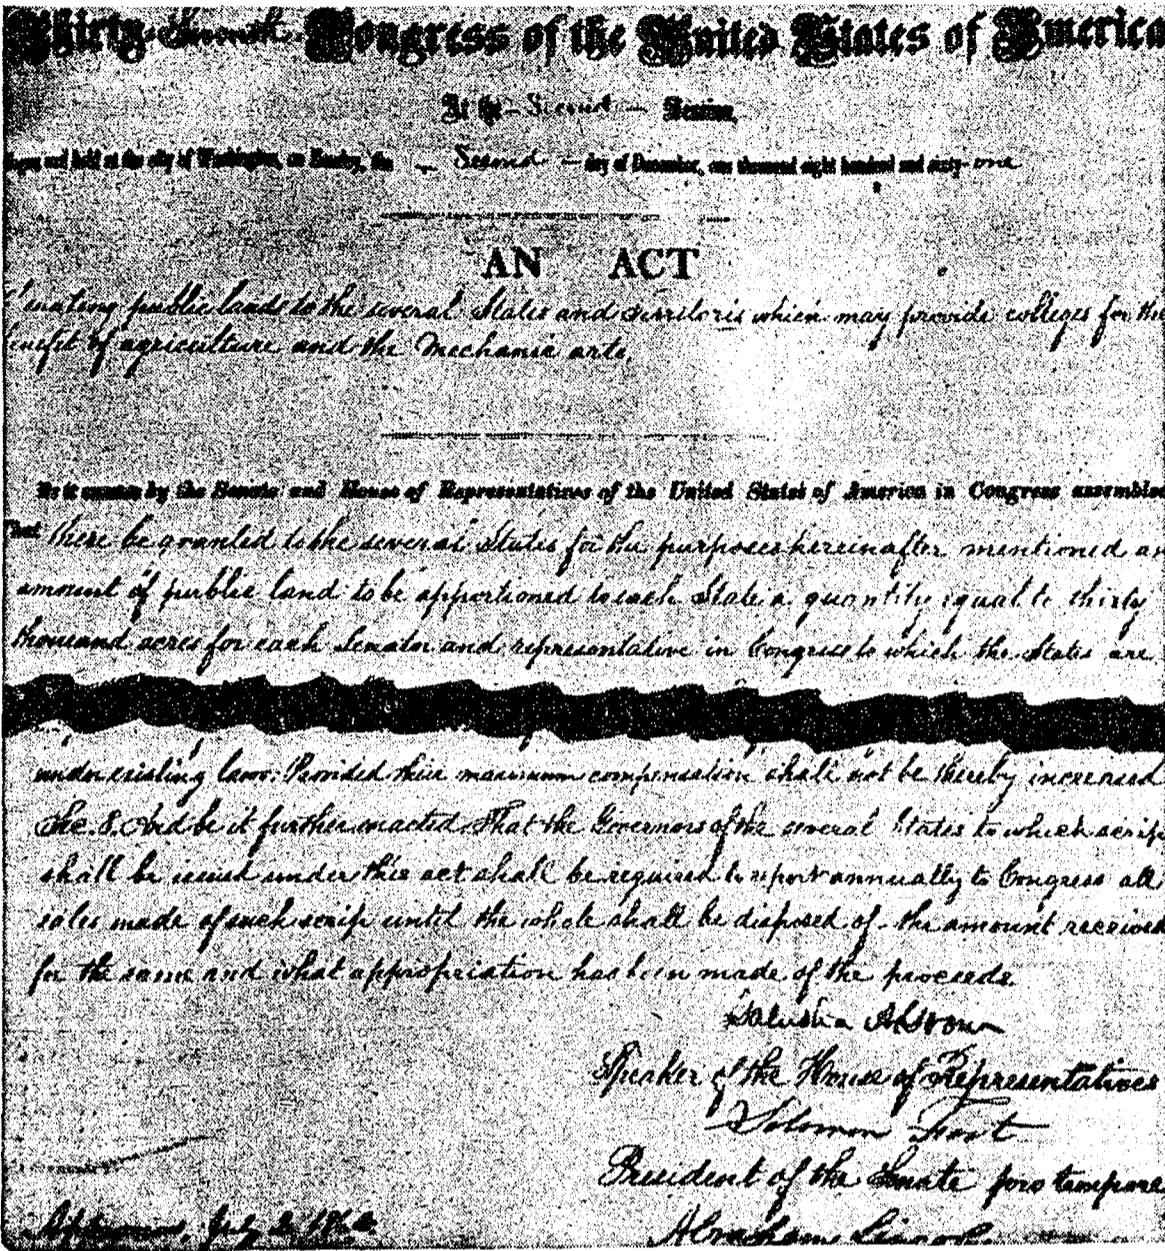 Thirty-Seventh Congress of the United States of America
At the - Second - Session,
and held at the city of Washington, on Monday, the - Second - day of December, one thousand eight hundred and sixty-one
AN ACT
public lands to the several States and Territories which may provide colleges for the
of agriculture and the Mechanic arts.
Be it enacted by the Senate and House of Representatives of the United States of America in Congress assembled
That there be granted to the several States for the purposes hereinafter mentioned an
amount of public land to be apportioned to each State a quantity equal to thirty
thousand acres for each Senator and representative in Congress to which the States are
under existing laws: Provided their maximum compensation shall not be thereby increased
Sec. 8. And be it further enacted That the Governors of the several States to which scrip
shall be issued under this act shall be required to report annually to Congress all
sales made of such scrip until the whole shall be disposed of the amount received
for the same and what appropriation has been made of the proceeds.
Galusha A Grow
Speaker of the House of Representatives
Solomon Foot
President of the Senate pro tempore
Approved, July 2, 1862
Abraham Lincoln